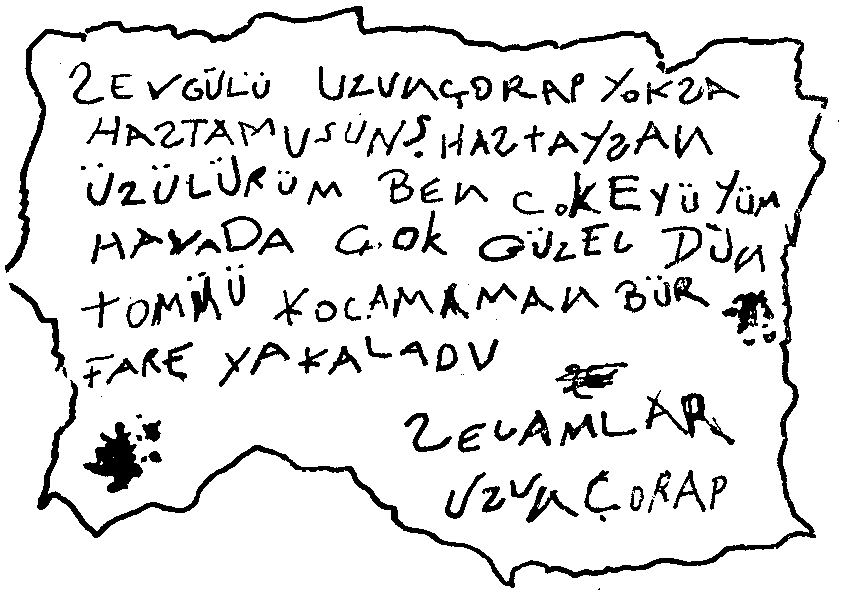 SEVGÜLÜ UZUNÇORAP YOKSA
HASTAMUSUNŞ HASTAYSAN
ÜZÜLÜRÜM BEN ÇOKEYÜYÜM
HAVADA ÇOK GÜZEL DÜN
TOMMÜ KOCAMAMAN BÜR
FARE YAKALADU
SELAMLAR
UZUN ÇORAP